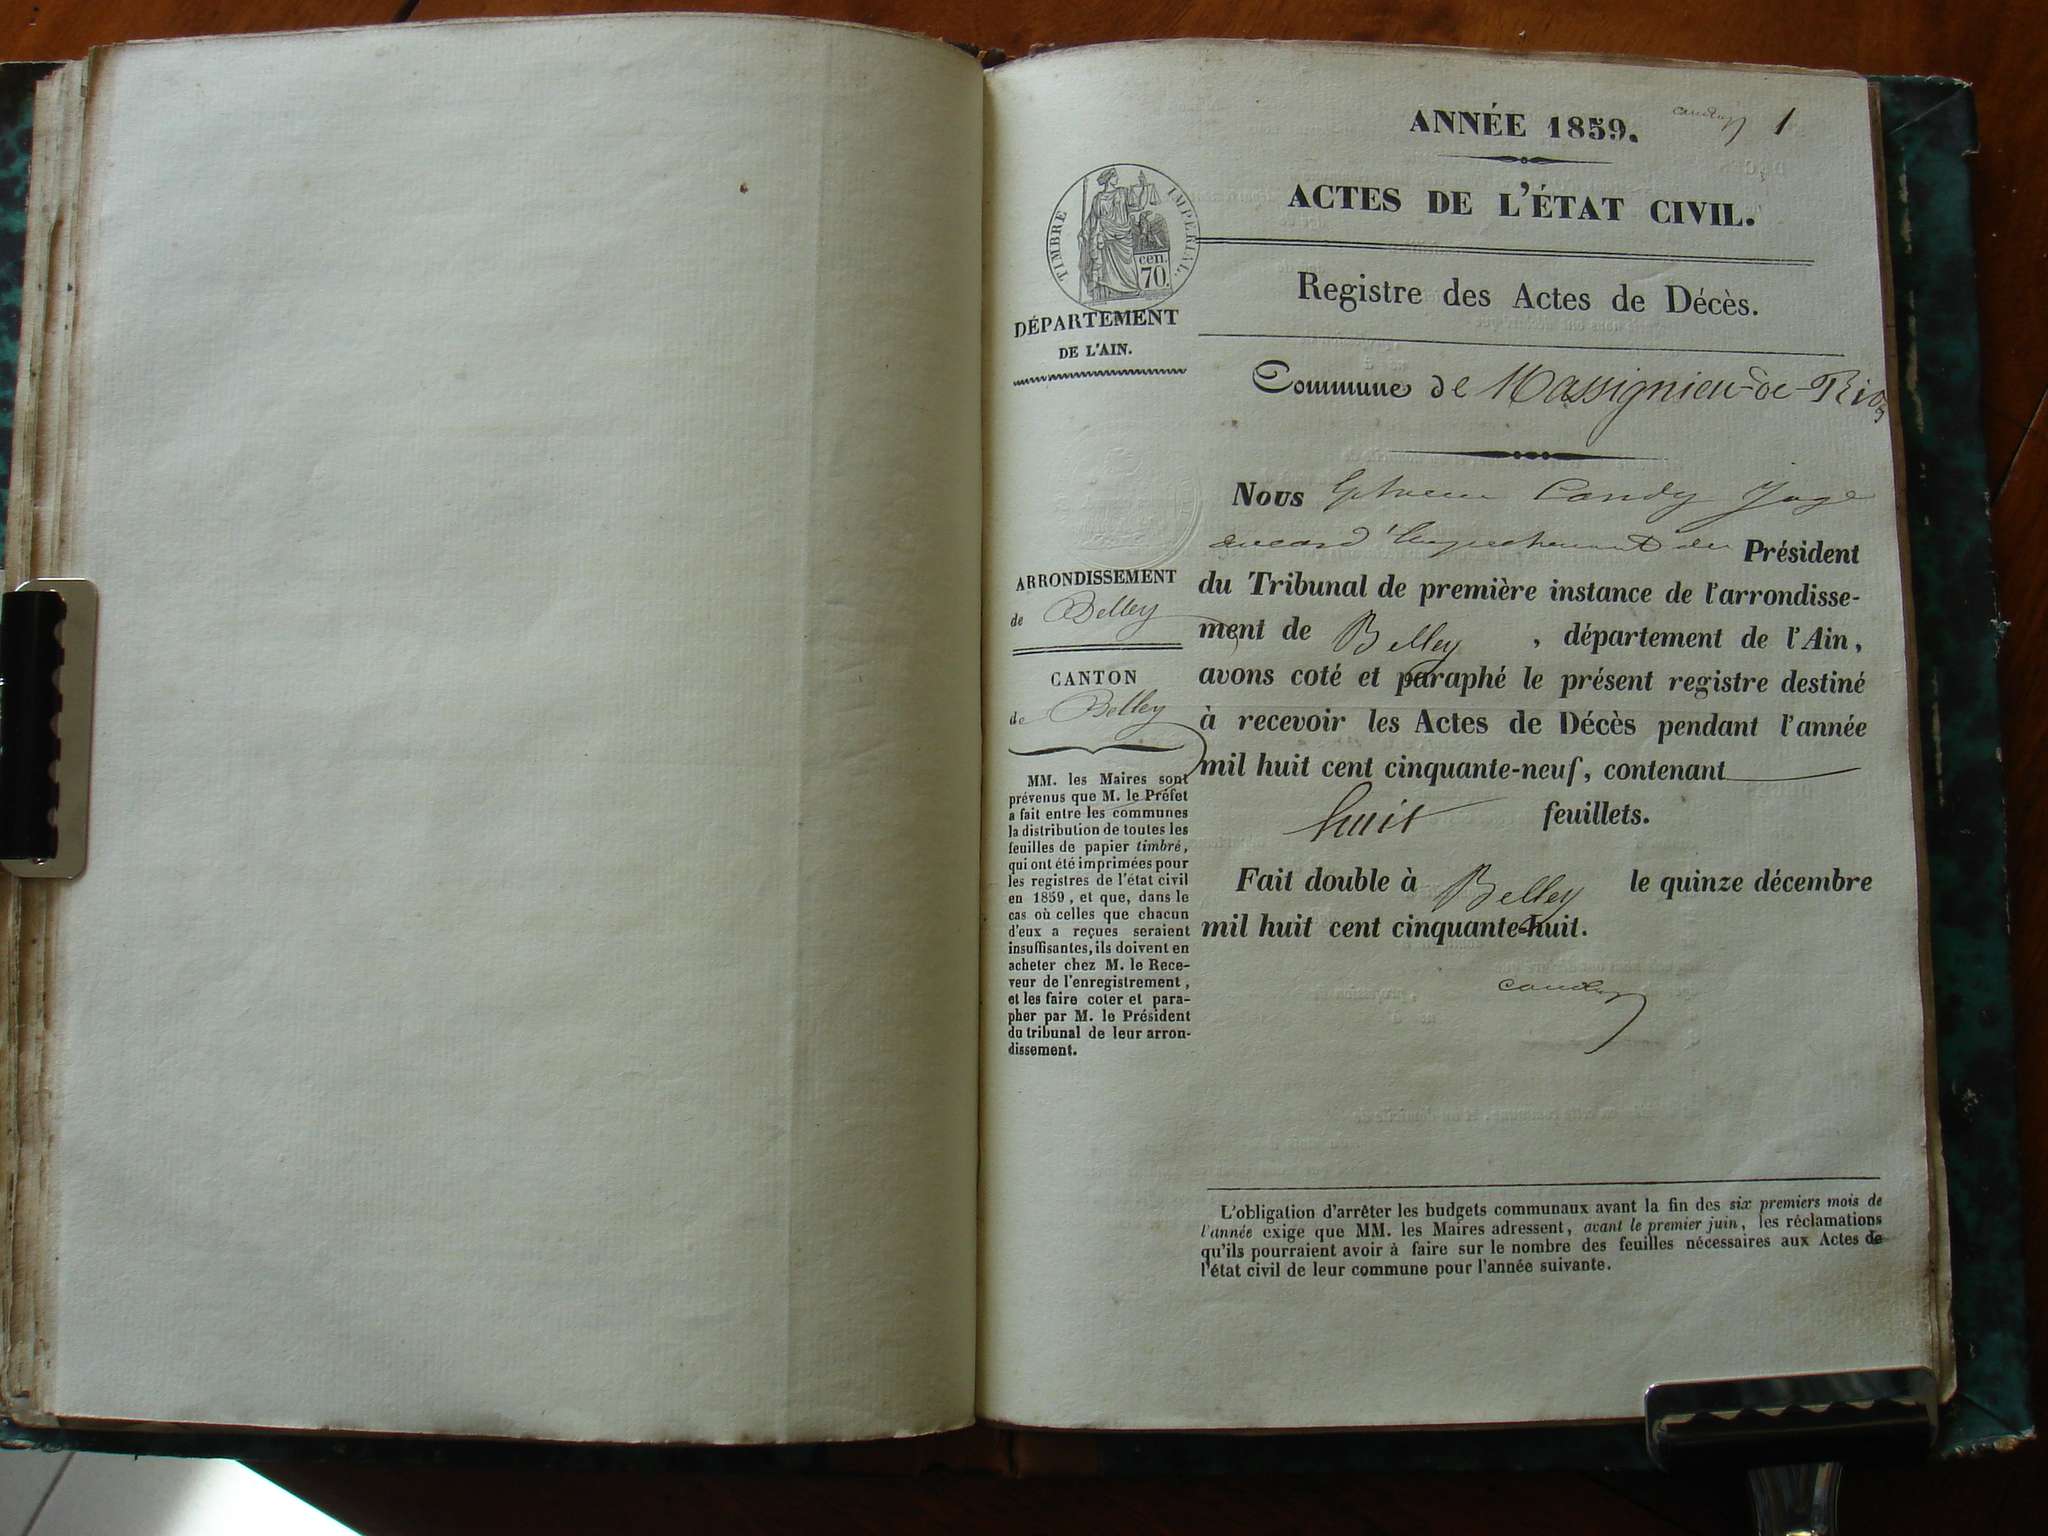 ANNÉE 1859.
1
ACTES DE L'ÉTAT CIVIL.
TIMBRE IMPÉRIAL.
cen.
70.
Registre des Actes de Décès.
DÉPARTEMENT
DE L'AIN.
Commune de Massignieu-de-Rives
Nous Candy Juge
Président
du Tribunal de première instance de l'arrondisse-
ment de Belley, département de l'Ain,
avons coté et paraphé le présent registre destiné
à recevoir les Actes de Décès pendant l'année
mil huit cent cinquante-neuf, contenant
huit feuillets.
Fait double à Belley le quinze décembre
mil huit cent cinquante-huit.
Candy
ARRONDISSEMENT
de Belley
CANTON
de Belley
MM. les Maires sont
prévenus que M. le Préfet
a fait entre les communes
la distribution de toutes les
feuilles de papier timbré,
qui ont été imprimées pour
les registres de l'état civil
en 1859, et que, dans le
cas où celles que chacun
d'eux a reçues seraient
insuffisantes, ils doivent en
acheter chez M. le Rece-
veur de l'enregistrement,
et les faire coter et para-
pher par M. le Président
du tribunal de leur arron-
dissement.
L'obligation d'arrêter les budgets communaux avant la fin des six premiers mois de
l'année exige que MM. les Maires adressent, avant le premier juin, les réclamations
qu'ils pourraient avoir à faire sur le nombre des feuilles nécessaires aux Actes de
l'état civil de leur commune pour l'année suivante.